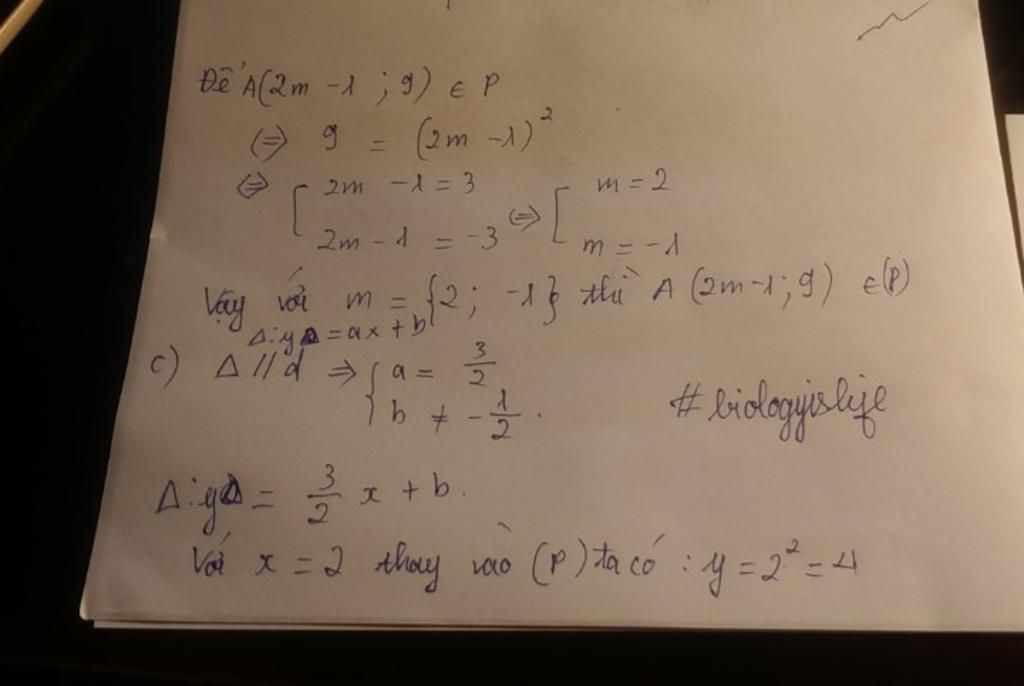 Để A(2m - 1 ; 9) ∈ P
(=) 9 = (2m - 1)²
⇔ [ 2m - 1 = 3 ⇔ [ m = 2
2m - 1 = -3 m = -1
Vậy với m = {2; -1} thì A (2m-1; 9) ∈(P)
Δ: y = ax + b
c) Δ // d ⇒ { a = 3/2
b ≠ -1/2 .
#biologyislife
Δ: y = 3/2 x + b.
Với x = 2 thay vào (P) ta có : y = 2² = 4